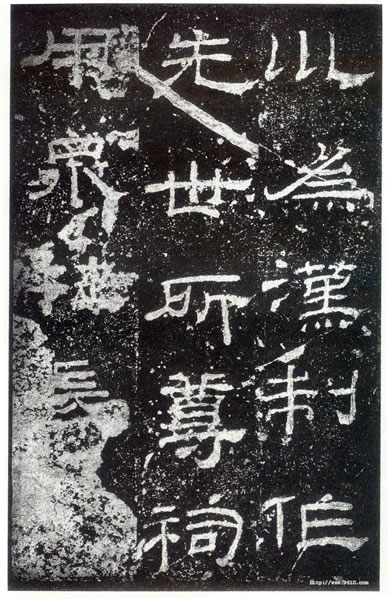 川為漢制作
先世所尊祠
用眾牲長
Http://www.9610.com